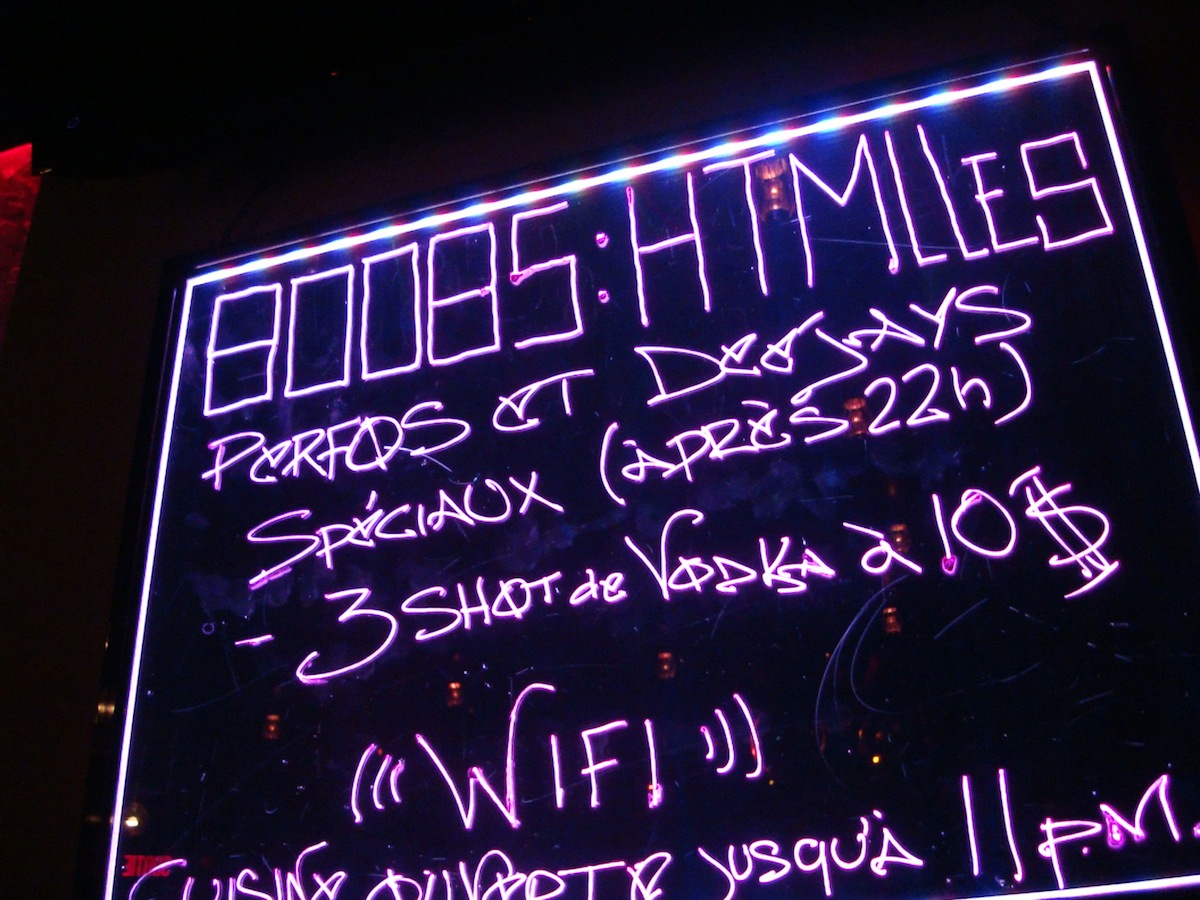 80085:HTMLLES
PERFOS ET DEEJAYS
SPÉCIAUX (APRÈS 22h)
- 3 SHOT de VODKA à 10$
((( WIFI )))
CUISINE OUVERTE JUSQU'À 11 P.M.